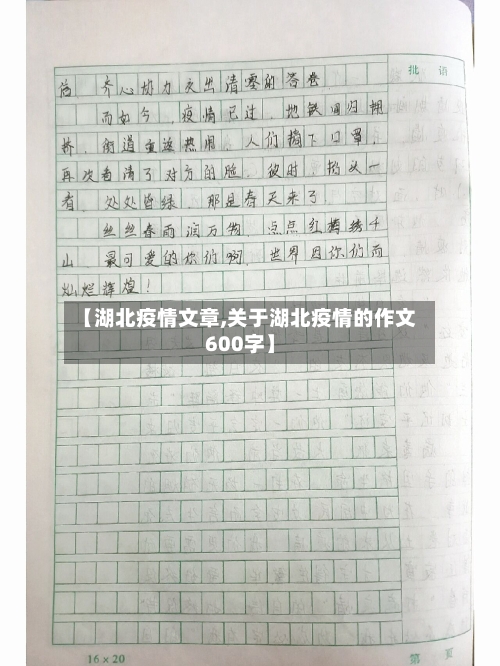 批 语
首，齐心协力交出清零的答卷
而如今，疫情已过，地铁回归拥
挤，街道重返热闹，人们摘下口罩，
再次看清了对方的脸，彼时，抬头一
看，处处皆绿，那是春天来了
丝丝春雨润万物，点点红梅绣千
山，最可爱的你们啊，世界因你们而
灿烂辉煌！
【湖北疫情文章,关于湖北疫情的作文
600字】
16×20
第 页